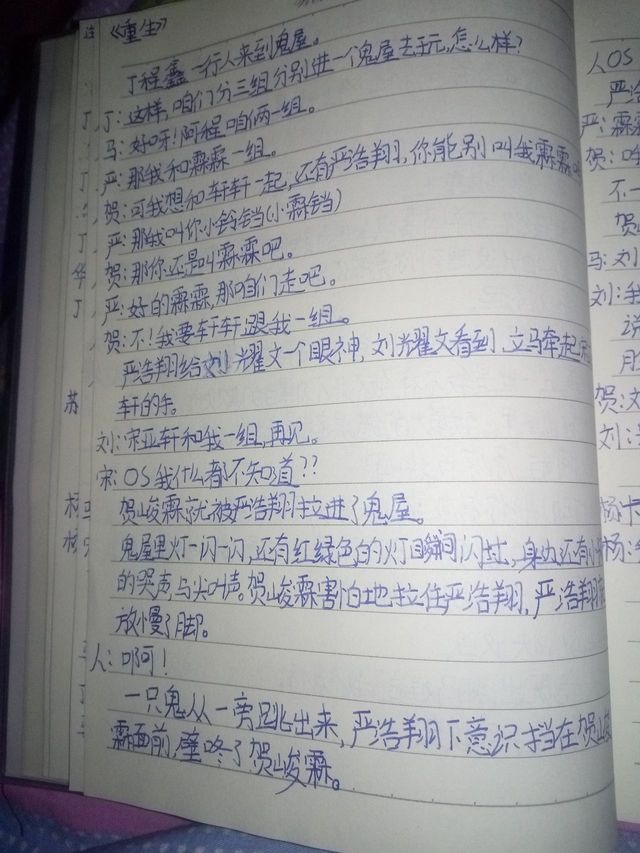 《重生》
丁程鑫一行人来到鬼屋。
丁:这样,咱们分三组分别进一个鬼屋去玩,怎么样?
马:好呀!阿程咱俩一组。
严:那我和霖霖一组。
贺:可我想和轩轩一起,还有严浩翔,你能别叫我霖霖
严:那我叫你小铃铛(小霖铛)
贺:那你还是叫霖霖吧。
严:好的霖霖,那咱们走吧。
贺:不!我要轩轩跟我一组。
严浩翔给刘耀文一个眼神,刘耀文看到,立马牵起宋
轩的手。
刘:宋亚轩和我一组,再见。
宋:OS我什么都不知道??
贺峻霖就被严浩翔拉进了鬼屋。
鬼屋里灯一闪一闪,还有红绿色的灯瞬间闪过,身边还有小
的哭声与尖叫声。贺峻霖害怕地拉住严浩翔,严浩翔
放慢了脚。
人:啊!
一只鬼从一旁跳出来,严浩翔下意识挡在贺峻
霖面前,壁咚了贺峻霖。
连
丁
马
丁
丁
华
丁
苏
杨
人OS
严浩
严:霖霖
贺:
不一
贺
马:刘
刘:我
说
贺:文
刘:
杨: